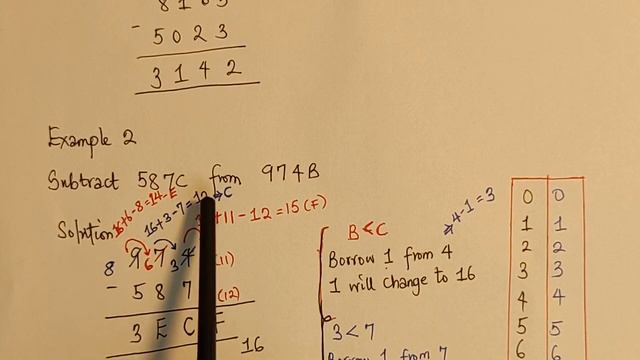 8 1 6 5
- 5 0 2 3
3 1 4 2
Example 2
Subtract 587C from 974B
16+6-8=14-E
16+3-7=12 → C
+11-12=15(F)
Solution
8 9 6 7 3 4 (11)
- 5 8 7 (12)
3 E C F 16
4-1=3
B<C
Borrow 1 from 4
1 will change to 16
3<7
Borrow 1 from 7
0 0
1 1
2 2
3 3
4 4
5 5
6 6